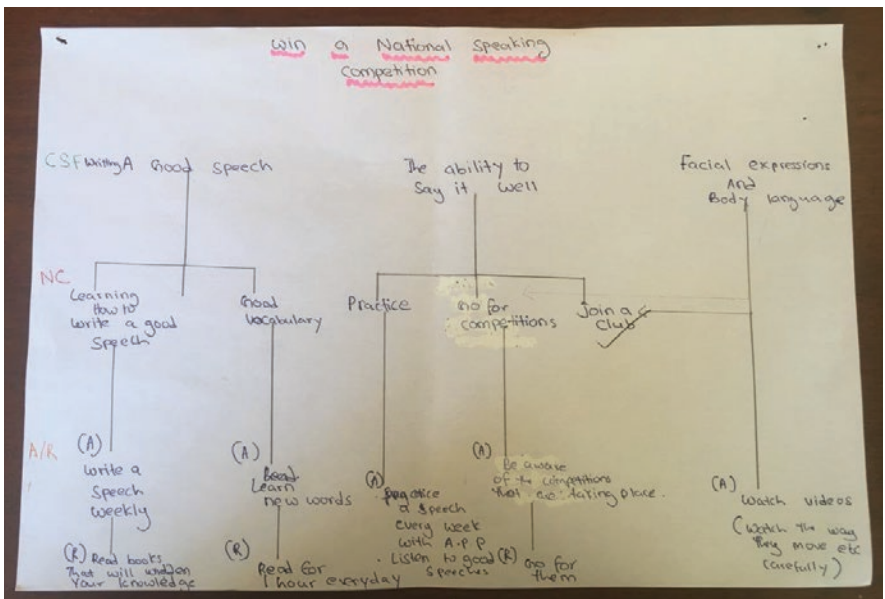 Win a National Speaking
Competition
CSF Writing A Good Speech
The ability to
Say it Well
Facial expressions
And
Body language
NC
Learning
How to
Write a good
Speech
Good
Vocabulary
Practice
Go for
competitions
Join a
Club
A/R
(A)
Write a
Speech
Weekly
(R) Read books
That will widden
Your knowledge
(A)
Learn
new words
(R)
Read for
1 hour everyday
(A)
Practice
a speech
every week
with A.P.P
. Listen to good
Speeches
(A)
Be aware
of the competitions
that are taking place.
(R) Go for
them
(A)
Watch videos
(Watch the way
they move etc
carefully)